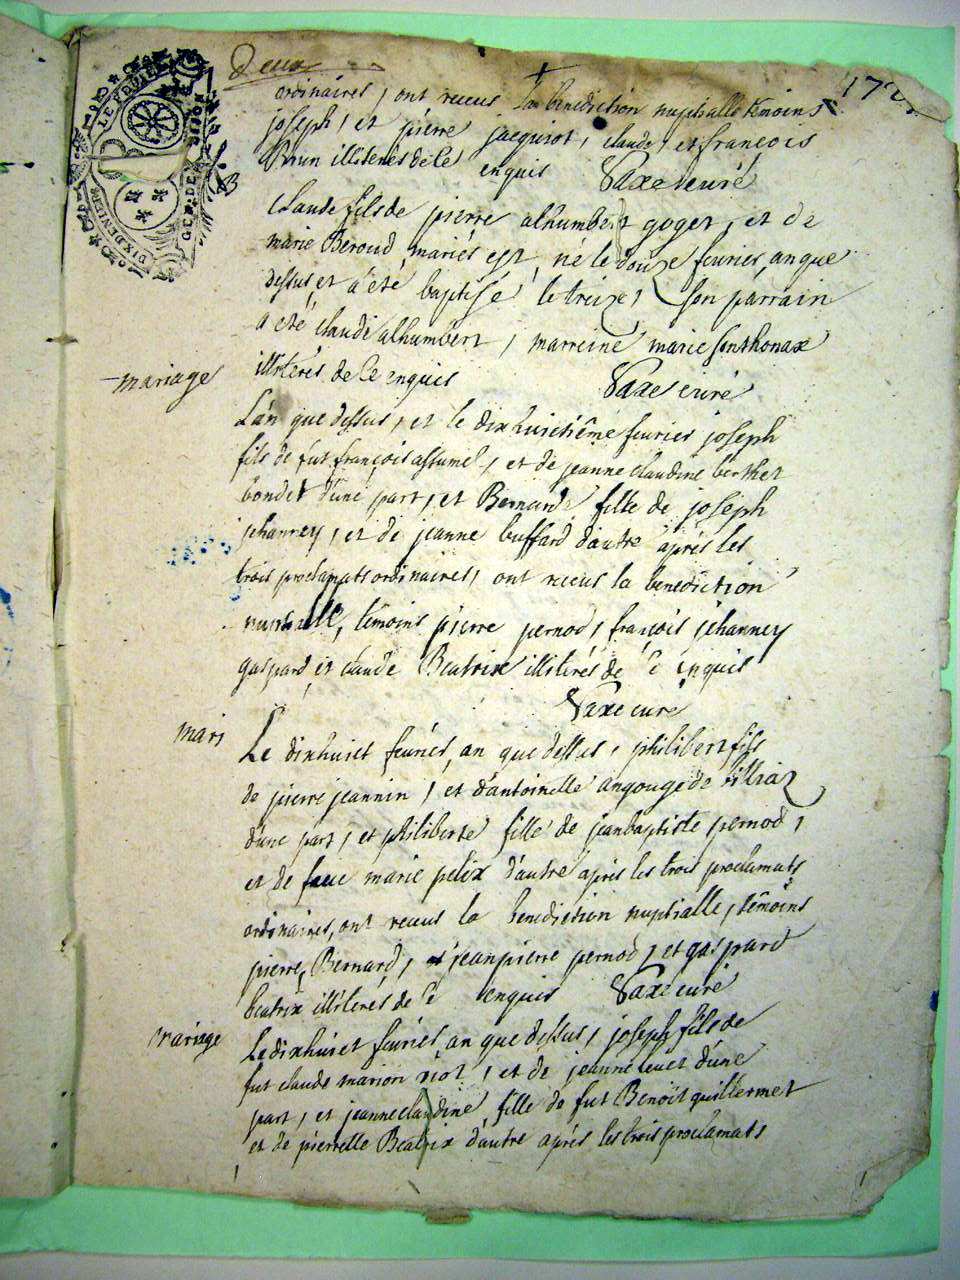 Deux
ordinaires, ont receus la benediction nuptialle témoins
joseph, et pierre jacquirot, claude, et françois
Brun illiterés de ce enquis Saxe curé
Claude fils de pierre alhumbert goget, et de
marie Beroud mariés est né le douze fevrier, an que
dessus, et a été baptisé le treize, son parrain
a été Claude alhumbert, marreine marie Sonthonax
illiterés de ce enquis Saxe curé
mariage
L'an que dessus, et le dixhuictiéme fevrier joseph
fils de fut françois et de jeanne claudine berthet
bondet d'une part, et Bernarde fille de joseph
jehanney, et de jeanne buffard d'autre après les
trois proclamats ordinaires, ont receus la benediction
nuptialle, témoins pierre pernod, françois jehanney
gaspard et claude Beatrix illiterés de ce enquis
Saxe curé
mari
Le dixhuict fevrier, an que dessus, philibert fils
de pierre jeannin, et d'antoinette de
d'une part, et philiberte fille de jean baptiste pernod,
et de marie pelix d'autre après les trois proclamats
ordinaires, ont receus la benediction nuptialle, témoins
pierre Bernard, jean pierre pernod, et gaspard
beatrix illiterés de ce enquis Saxe curé
mariage
Le dixhuict fevrier, an que dessus, joseph fils de
fut claude marion riot, et de jeanne d'une
part, et jeanne claudine fille de fut Benoit guillermet
et de pierrette Beatrix d'autre après les trois proclamats